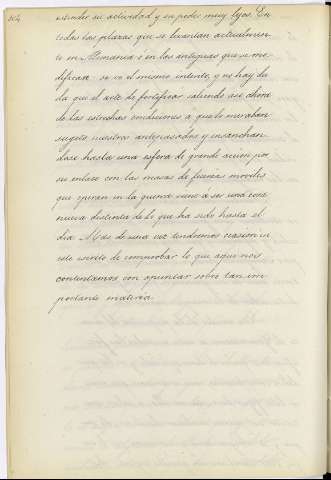 204
estender su actividad y su poder muy lejos. En
todas las plazas que se levantan actualmen-
te en Alemania ó en las antiguas que se mo-
difican se ve el mismo intento, y no hay du-
da que el arte de fortificar saliendo asi ahora
de las estrechas condiciones a que lo miraban
sugeto nuestros antepasados y ensanchan-
dose hasta una esfera de grande accion por
su enlace con las masas de fuerza moviles
que operan en la guerra viene a ser una cosa
nueva distinta de lo que ha sido hasta el
dia. Mas de una vez tendremos ocasion en
este escrito de comprobar lo que aqui nos
contentamos con apuntar sobre tan im-
portante materia